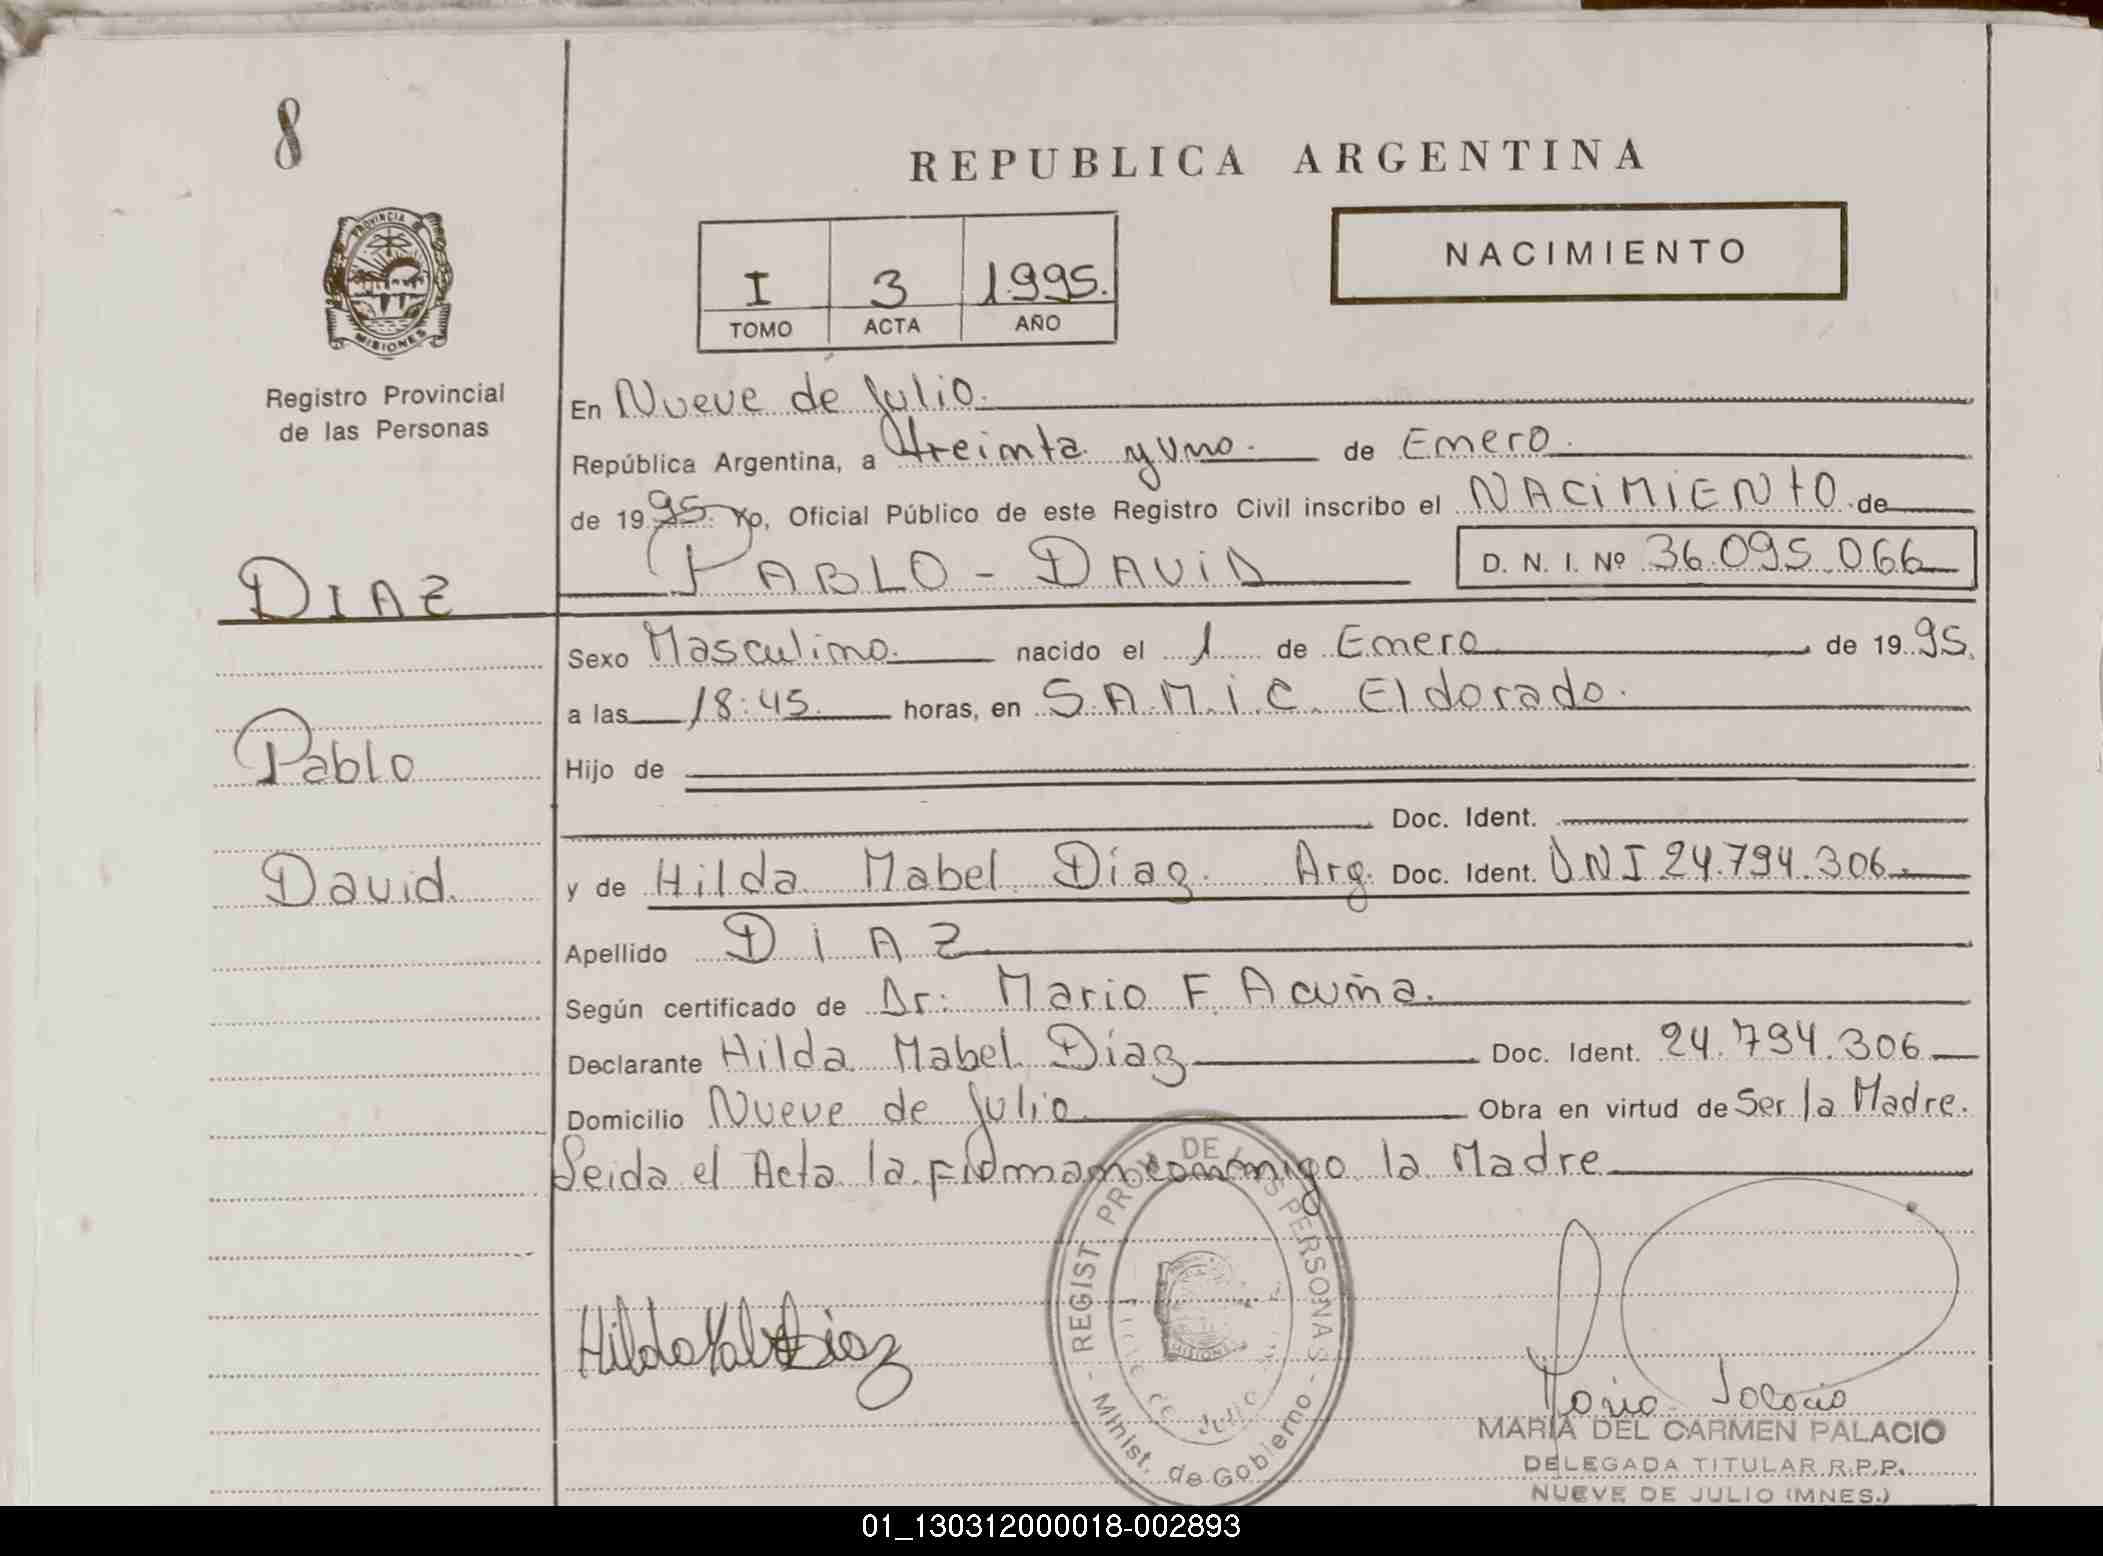 8
REPUBLICA ARGENTINA
PROVINCIA
MISIONES
I 3 1995.
TOMO ACTA AÑO
NACIMIENTO
Registro Provincial
de las Personas
En Nueve de Julio.
República Argentina, a treinta y uno. de Enero.
de 1995. Yo, Oficial Público de este Registro Civil inscribo el NACIMIENTO de
PABLO - DAVID D. N. I. Nº 36.095.066
DIAZ
Sexo Masculino. nacido el 1 de Enero de 1995.
a las 18:45. horas, en S.A.M.I.C. Eldorado.
Pablo
Hijo de
Doc. Ident.
David.
y de Hilda Mabel Díaz. Arg. Doc. Ident. DNI 24.794.306.
Apellido DIAZ
Según certificado de Dr: Mario F. Acuña.
Declarante Hilda Mabel Díaz Doc. Ident. 24.794.306
Domicilio Nueve de Julio. Obra en virtud de Ser la Madre.
Leida el Acta la firman conmigo la Madre
REGIST. PROV. DE LAS PERSONAS
Minist. de Gobierno
MISIONES
de Julio
Hilda Díaz
María Palacio
MARIA DEL CARMEN PALACIO
DELEGADA TITULAR R.P.P.
NUEVE DE JULIO (MNES.)
01_130312000018-002893